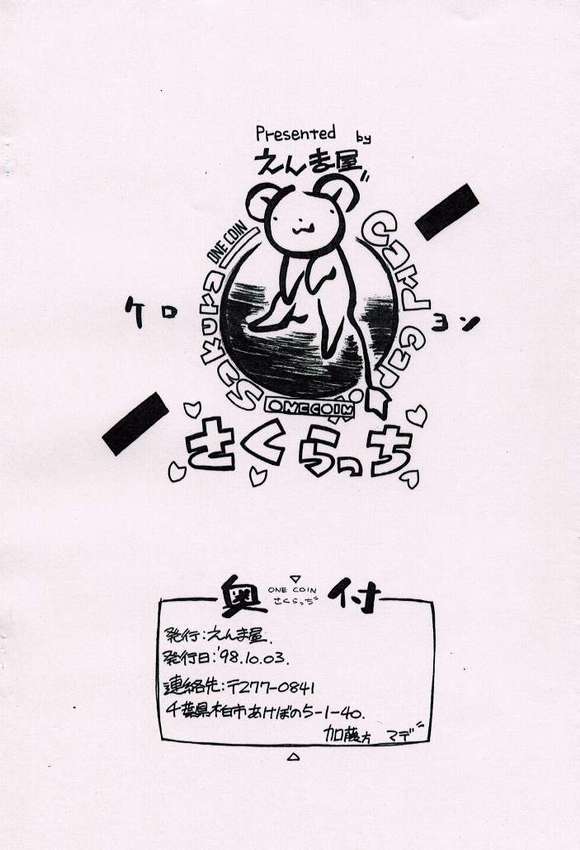 Presented by
えんま屋゛
ONE COIN
Sakura
Card Car
ケロ
ヨン
ONE COIN
さくらっち
奥付
ONE COIN
さくらっち
発行:えんま屋.
発行日:'98.10.03.
連絡先:〒277-0841
千葉県柏市あけぼの5-1-40.
加藤方 マデ゛